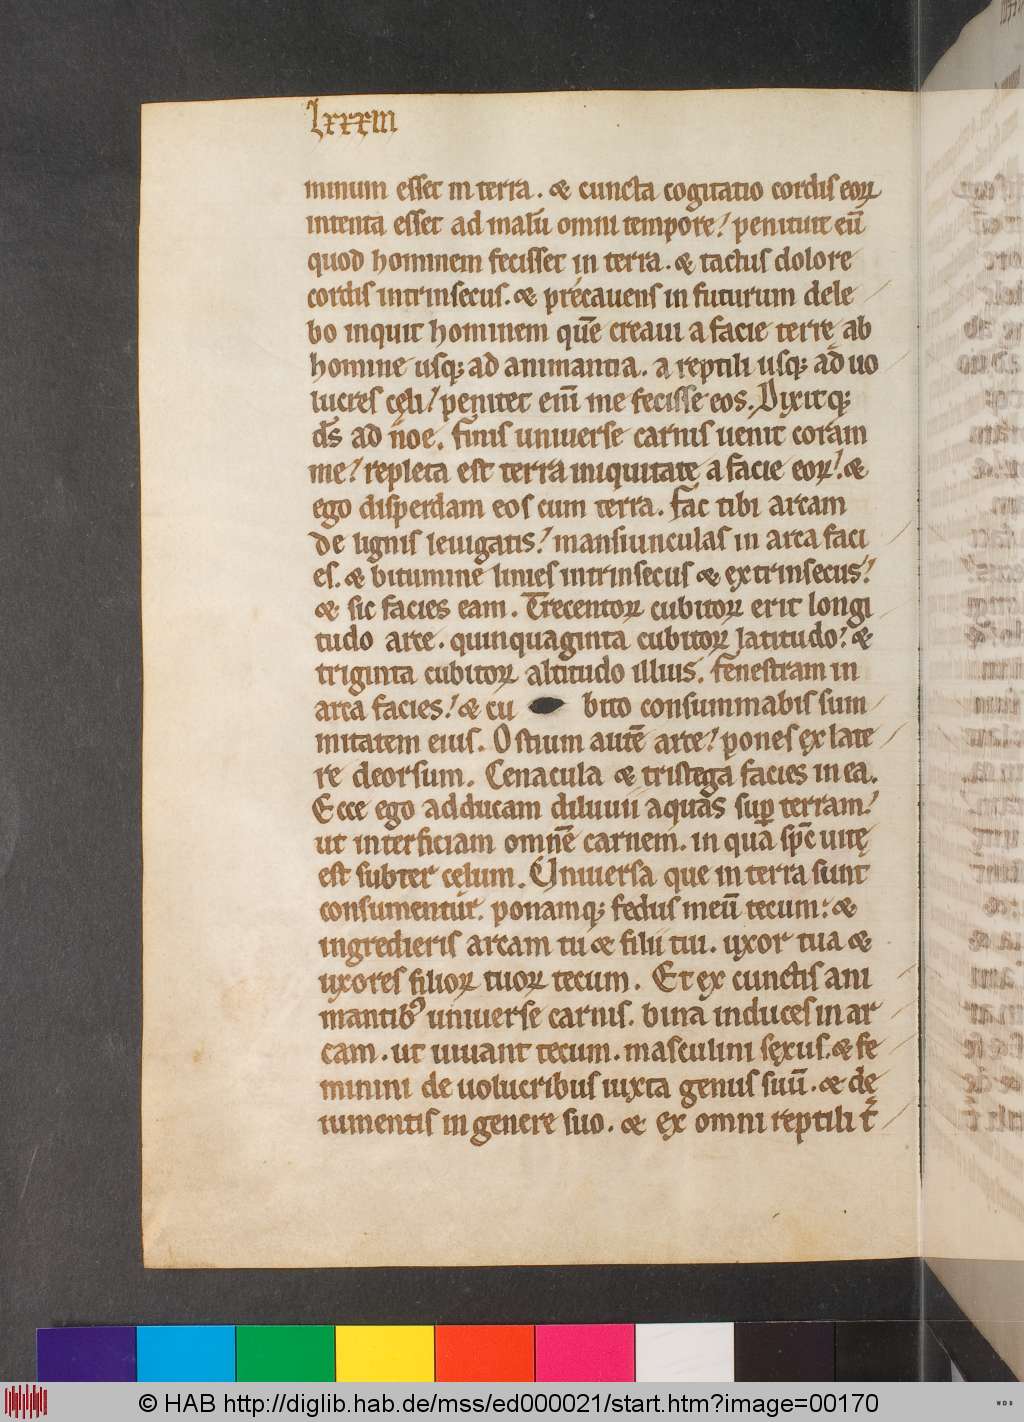 lxxxiii
minum esset in terra. & cuncta cogitatio cordis eoꝝ
intenta esset ad malū omni tempore! penituit eū
quod hominem fecisset in terra. & tactus dolore
cordis intrinsecus. & precauens in futurum dele
bo inquit hominem quē creaui a facie terre ab
homine usq; ad animantia. a reptili usq; ad uo
lucres cęli! penitet enī me fecisse eos. Dixitq;
ds̄ ad noe. finis uniuerse carnis uenit coram
me! repleta est terra iniquitate a facie eoꝝ! &
ego disperdam eos cum terra. fac tibi arcam
de lignis leuigatis! mansiunculas in arca faci
es. & bitumine linies intrinsecus & extrinsecus!
& sic facies eam. Trecentoꝝ cubitoꝝ erit longi
tudo arce. quinquaginta cubitoꝝ latitudo! &
triginta cubitoꝝ altitudo illius. fenestram in
arca facies! & cu bito consummabis sum
mitatem eius. Ostium autē arce! pones ex late
re deorsum. Cenacula & tristega facies in ea.
Ecce ego adducam diluuii aquas suꝑ terram!
ut interficiam omnē carnem. in qua spc̄ uitę
est subter cęlum. Uniuersa que in terra sunt
consumentur. ponamq; fedus meū tecum: &
ingredieris arcam tu & filii tui. uxor tua &
uxores filioꝝ tuoꝝ tecum. Et ex cunctis ani
mantib; uniuerse carnis. bina induces in ar
cam. ut uiuant tecum. masculini sexus. & fe
minini de uolucribus iuxta genus suū. & de
iumentis in genere suo. & ex omni reptili t̄
© HAB http://diglib.hab.de/mss/ed000021/start.htm?image=00170